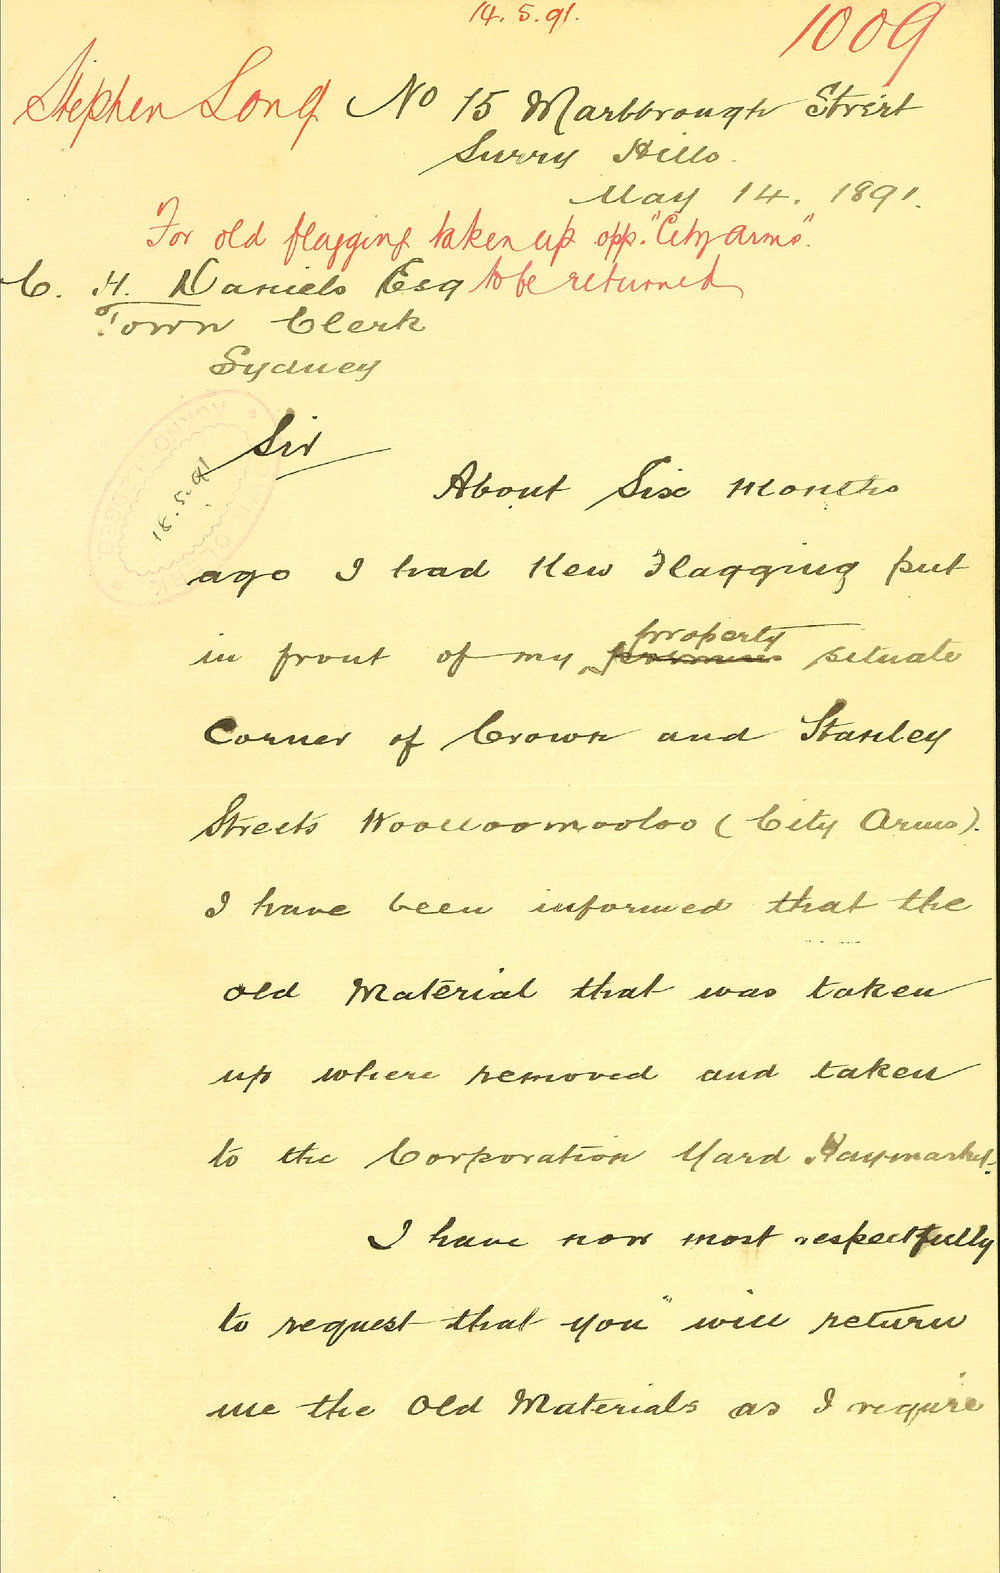 14. 5. 91.
1009
Stephen Long No 15 Marlbrough Street
Surry Hills.
May 14. 1891.
For old flagging taken up opp. "City Arms".
to be returned
C. H. Daniels Esq
Town Clerk
Sydney
18.5.91
Sir
About Six months
ago I had New Flagging put
in front of my premises property situate
Corner of Crown and Stanley
Streets Woolloomooloo (City Arms).
I have been informed that the
old Material that was taken
up where removed and taken
to the Corporation Yard Haymarket.
I have now most respectfully
to request that you will return
me the Old Materials as I require